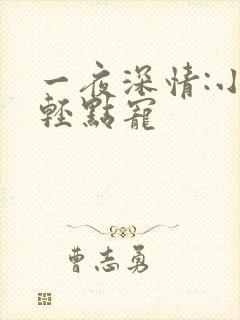 一夜深情:小
輕點寵
曹志勇